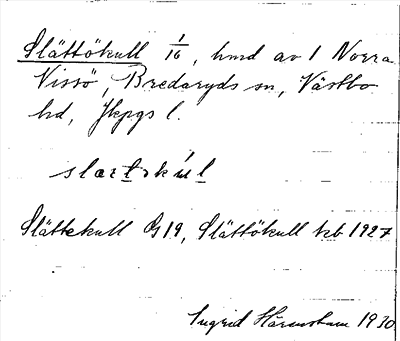 Slättökull 1/16, hmd av 1 Norra
Vissö, Bredaryds sn, Västbo
hd, Jkpgs l.
Slättekull G19, Slättökull kb 1927
Ingrid 1930